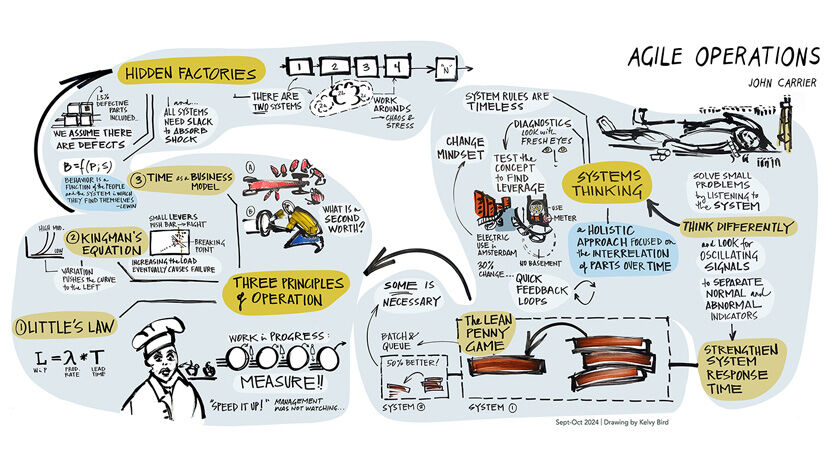 AGILE OPERATIONS
JOHN CARRIER
HIDDEN FACTORIES
1
2
3
4
"N"
1.5%
DEFECTIVE
PARTS
INCLUDED...
WE ASSUME THERE
ARE DEFECTS
and...
ALL SYSTEMS
NEED SLACK
to ABSORB
SHOCK
THERE ARE
TWO SYSTEMS
WORK
AROUNDS
→ CHAOS &
STRESS
B=f(P;S)
BEHAVIOR IS A
FUNCTION of the PEOPLE
and the SYSTEM in WHICH
THEY FIND THEMSELVES
-LEWIN
③ TIME as a BUSINESS
MODEL
A
B
WHAT IS a
SECOND
WORTH?
HIGH
MED.
LOW
② KINGMAN'S
EQUATION
VARIATION
PUSHES the CURVE
to the LEFT
SMALL LEVERS
PUSH BAR → RIGHT
BREAKING
POINT
INCREASING the LOAD
EVENTUALLY CAUSES FAILURE
THREE PRINCIPLES
of OPERATION
① LITTLE'S LAW
L = λ * T
W.P
PROD.
RATE
LEAD
TIME
WORK in PROGRESS:
MEASURE!!
"SPEED IT UP!"
MANAGEMENT
WAS NOT WATCHING...
SYSTEM RULES ARE
TIMELESS
DIAGNOSTICS
LOOK with
FRESH EYES
CHANGE
MINDSET
TEST the
CONCEPT to FIND
LEVERAGE
USE
METER
ELECTRIC
USE in
AMSTERDAM
NO BASEMENT
30%
CHANGE...
QUICK
FEEDBACK
LOOPS
SYSTEMS
THINKING
a HOLISTIC
APPROACH FOCUSED on
the INTERRELATION
of PARTS OVER TIME
SOLVE SMALL
PROBLEMS
by LISTENING to
the SYSTEM
THINK DIFFERENTLY
and LOOK for
OSCILLATING
SIGNALS
to SEPARATE
NORMAL and
ABNORMAL
INDICATORS
STRENGTHEN
SYSTEM
RESPONSE
TIME
SOME IS
NECESSARY
The LEAN
PENNY
GAME
BATCH &
QUEUE
50% BETTER!
SYSTEM ②
SYSTEM ①
Sept-Oct 2024 | Drawing by Kelvy Bird